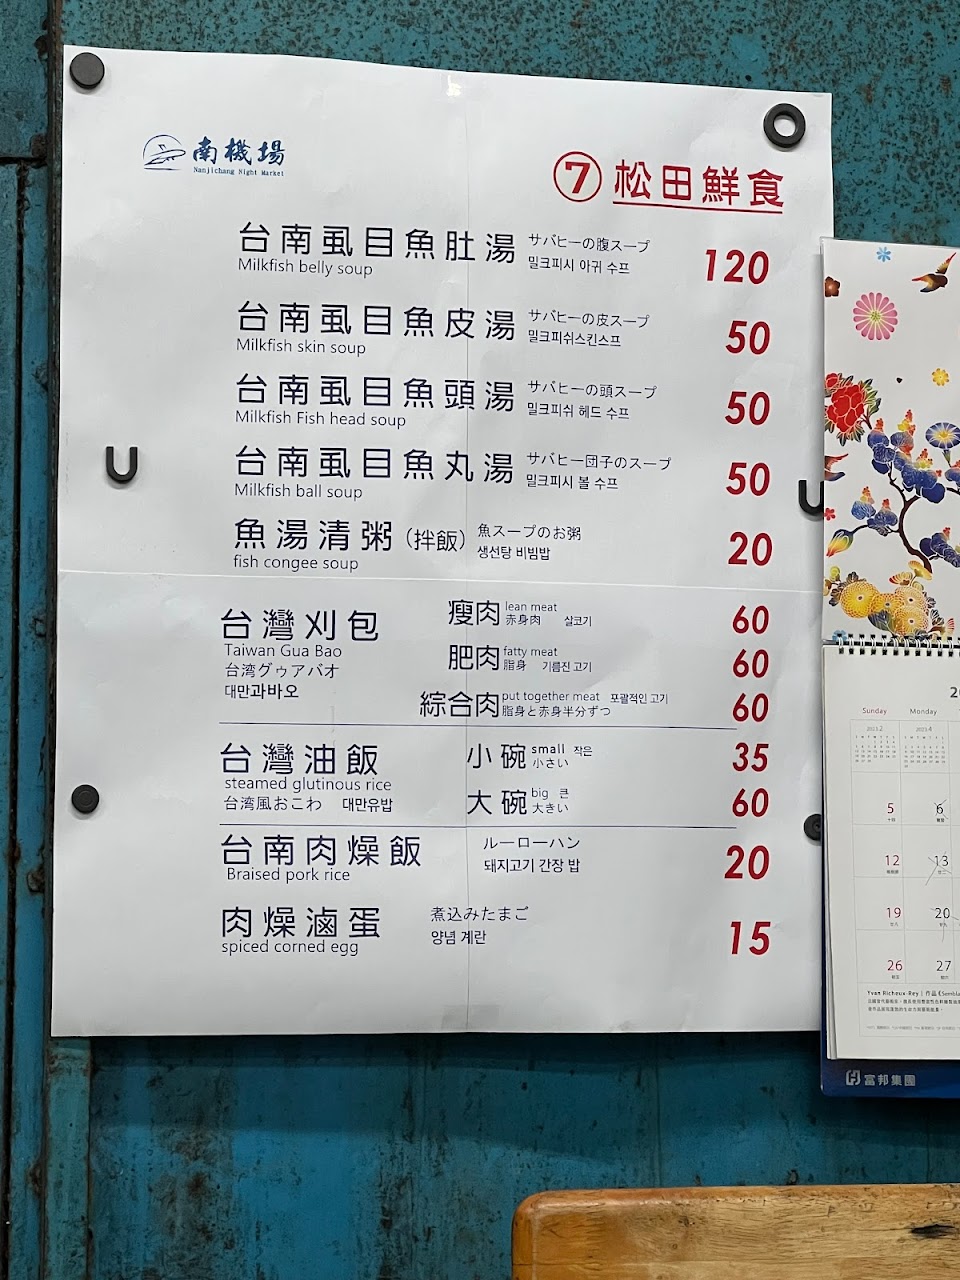 南機場
Nanjichang Night Market
⑦ 松田鮮食
台南虱目魚肚湯 サバヒーの腹スープ 120
Milkfish belly soup 밀크피시 아귀 수프
台南虱目魚皮湯 サバヒーの皮スープ 50
Milkfish skin soup 밀크피쉬스킨스프
台南虱目魚頭湯 サバヒーの頭スープ 50
Milkfish Fish head soup 밀크피쉬 헤드 수프
台南虱目魚丸湯 サバヒー団子のスープ 50
Milkfish ball soup 밀크피시 볼 수프
魚湯清粥(拌飯) 魚スープのお粥 20
fish congee soup 생선탕 비빔밥
台灣刈包
Taiwan Gua Bao
台湾グゥアバオ
대만과바오
瘦肉 lean meat 60
赤身肉 살코기
肥肉 fatty meat 60
脂身 기름진 고기
綜合肉 put together meat 포괄적인 고기 60
脂身と赤身半分ずつ
台灣油飯
steamed glutinous rice
台湾風おこわ 대만유밥
小碗 small 작은 35
小さい
大碗 big 큰 60
大きい
台南肉燥飯 ルーローハン 20
Braised pork rice 돼지고기 간장 밥
肉燥滷蛋 煮込みたまご 15
spiced corned egg 양념 계란
Sunday Monday
5 6
12 13
19 20
26 27
Yvan Richeux-Rey
富邦集團